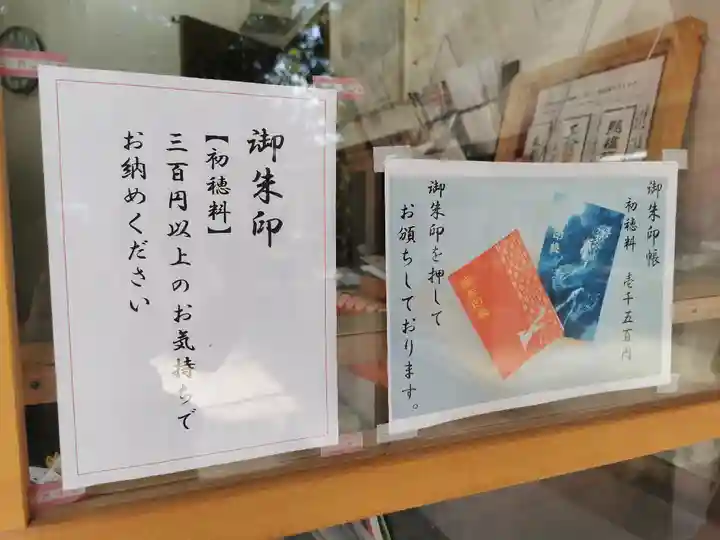 御朱印
【初穂料】
三百円以上のお気持ちで
お納めください
御朱印帳
初穂料 壱千五百円
御朱印を押して
お頒ちしております。